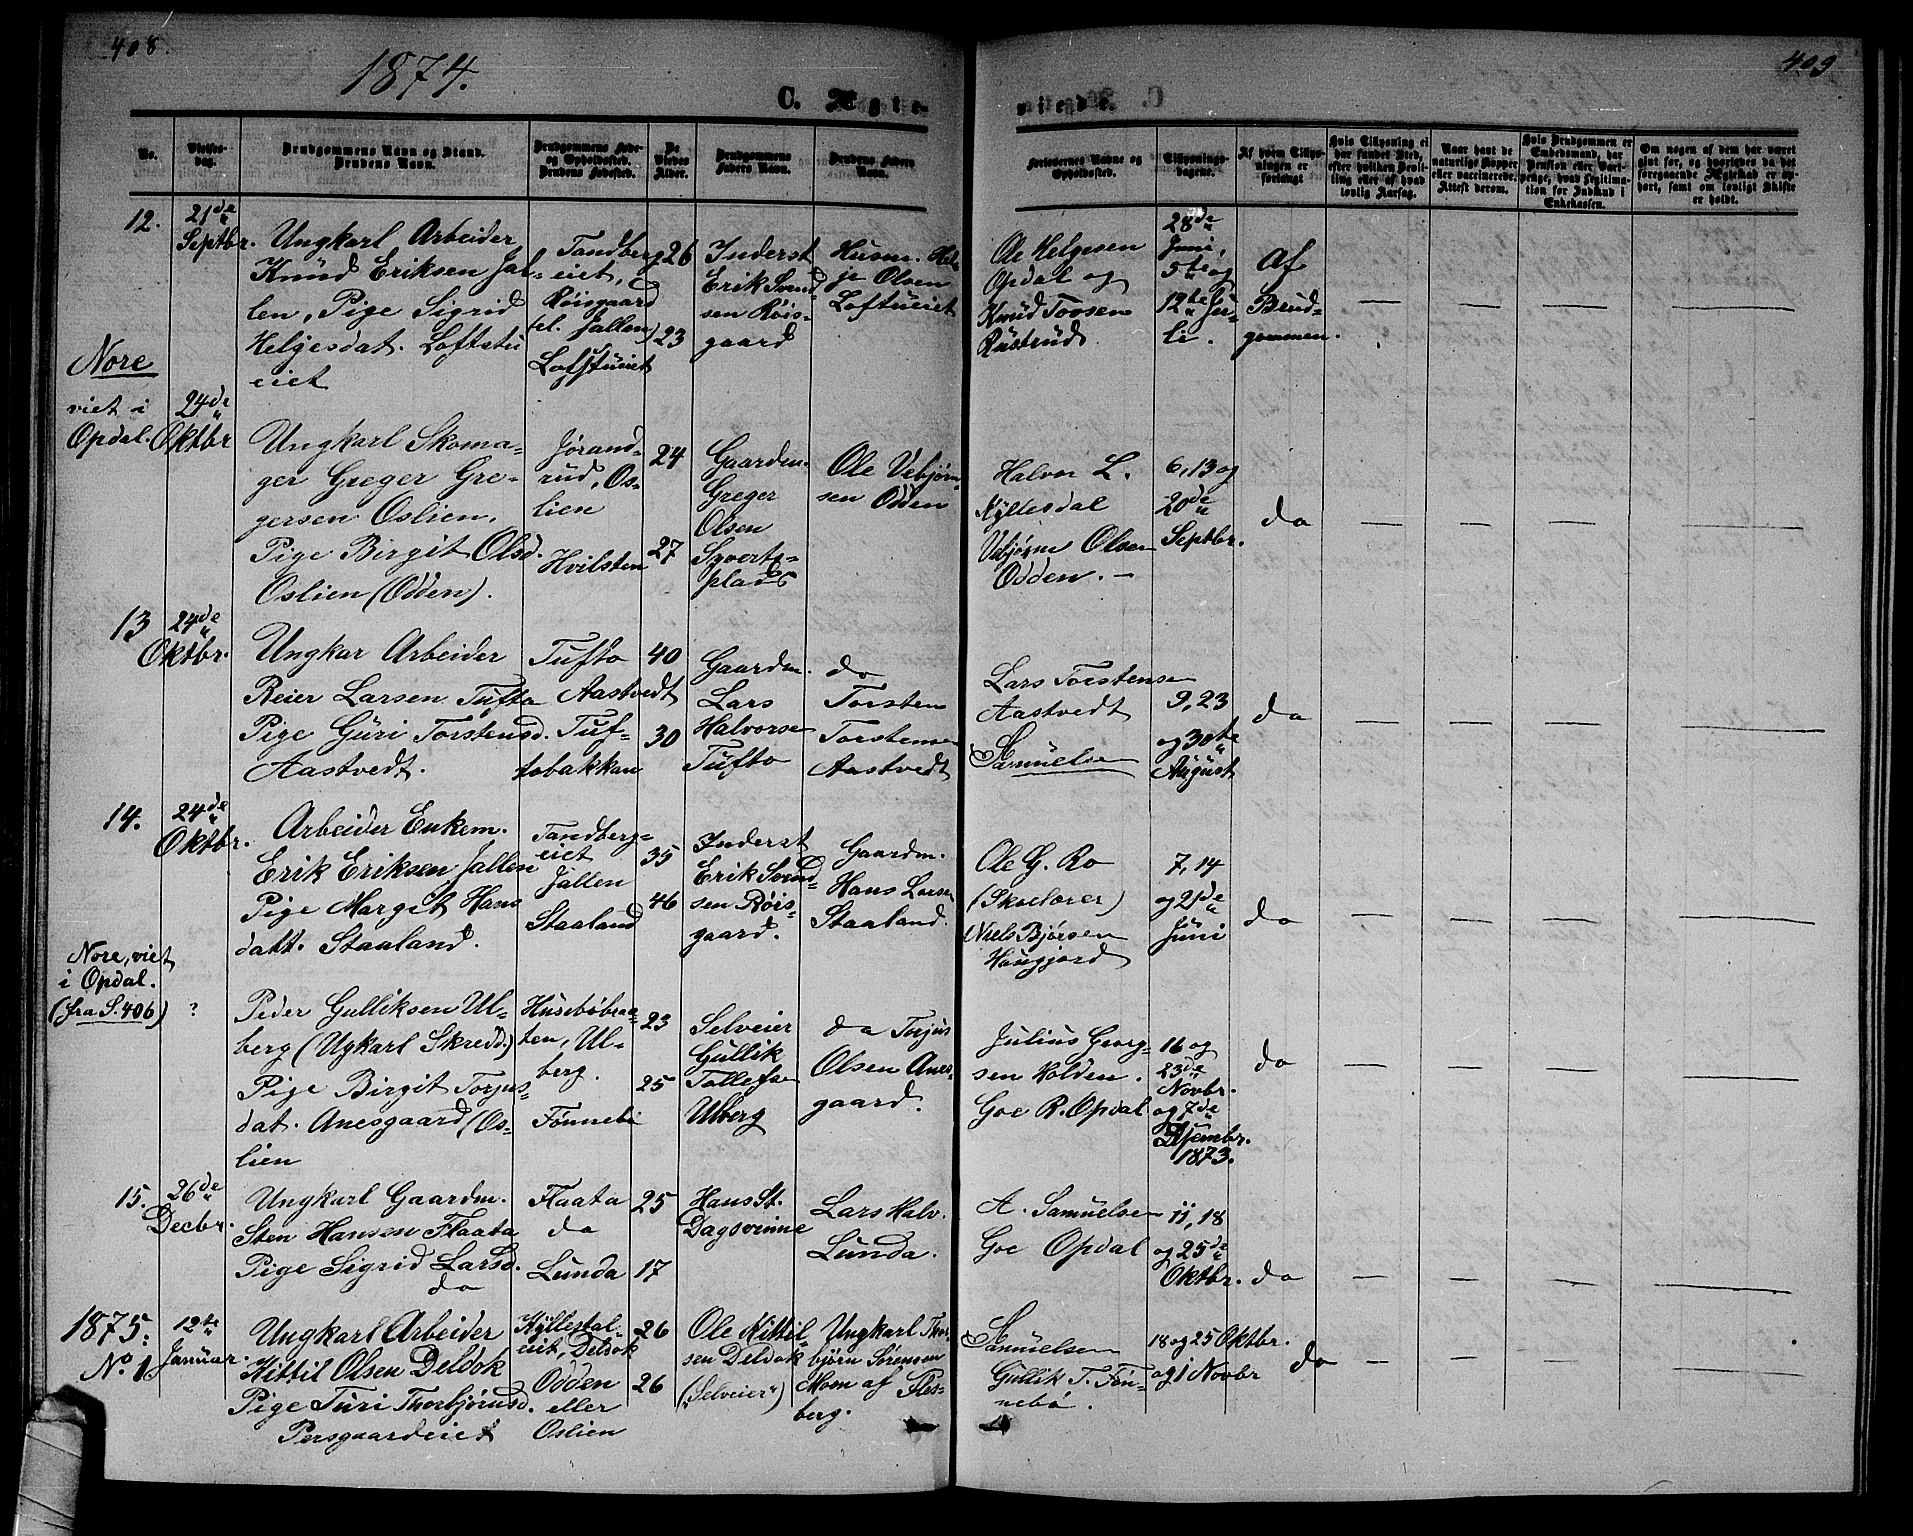 408.
409
1874.
C. Ægte-
viede.
No.
Vielses-
dag.
Brudgommens Navn og Stand.
Brudens Navn.
Brudgommens Føde-
og Opholdssted.
Brudens Fødested.
De
Viedes
Alder.
Brudgommens
Faders Navn.
Brudens Faders
Navn.
Forlovernes Navne og
Opholdssted.
Tillysnings-
dagene.
Af hvem Tillys-
ningen er
forlangt
Hvis Tillysning ei
har fundet Sted,
efter hvilken Bevil-
ling eller af hvad
lovlig Aarsag.
Naar havt de
naturlige Kopper
eller vaccinerede.
Attest derom.
Hvis Brudgommen er
Embedsmand, har
Pension eller Vart-
penge, hvad Legitima-
tion for Indskud i
Enkekassen.
Om nogen af dem har været
gift før, og hvorledes da det
foregaaende Ægteskab er op-
hørt, samt om lovligt Skifte
er holdt.
12.
21de
Septbr.
Ungkarl Arbeider
Knud Eriksen Jal-
len, Pige Sigrid
Helgesdat. Loftstu
eiet
Tandberg
eiet,
Röisgaard
(el. Jallen)
Loftstueiet
26
23
Inderst
Erik Svend-
sen Röis-
gaard
Husm. Hel-
je Olsen
Loftueiet
Ole Helgesen
Opdal og
Knud Tovsen
Rustrud
28de
Juni,
5te og
12te Ju-
li.
Af
Brud-
gommen.
Nore
viet i
Opdal.
24de
Oktbr
Ungkarl Skoma-
ger Greger Gre-
gersen Oslien,
Pige Birgit Olsd.
Oslien (Odden).
Jørand-
rud, Os-
lien
Hvilsten
24
27
Gaardm.
Greger
Olsen
Sverts-
plads
Ole Vebjørn-
sen Odden
Halvor L.
Kyllesdal
Vebjørn Olsen
Odden. –
6, 13 og
20de
Septbr.
do
13
24de
Oktbr.
Ungkar Arbeider
Reier Larsen Tufto
Pige Guri Torstensd.
Aastvedt.
Tufto
Aastvedt
Tuf-
tobakkan
40
30
Gaardm.
Lars
Halvorsen
Tufto
do
Torsten
Torstensen
Aastvedt
Lars Torstensen
Aastvedt
Samuelsen
9, 23
og 30te
August
do
14.
24de
Oktbr.
Arbeider Enkem.
Erik Eriksen Jallen
Pige Margit Hans
datt. Staaland.
Tandberg-
eiet
Jallen
Staaland
35
46
Inderst
Erik Svend-
sen Röis-
gaard.
Gaardm.
Hans Larsen
Staaland.
Ole G. Ro
(Skolelærer)
Niels Bjørsen
Haugjord
7, 14
og 21de
Juni
do
Nore, viet
i Opdal.
(fra S. 406)
?
Peder Gulliksen Ul-
berg (Ugkarl Skredd.)
Pige Birgit Torjus-
dat. Anesgaard (Os-
lien
Husebøbraa-
ten, Ul-
berg.
Fønnebø
23
25
Selveier
Gullik
Tollefsen
Ulberg
do Torjus
Olsen Anes-
gaard.
Julius Georg-
sen Holden.
Goe R. Opdal
16 og
23de
Novbr.
og 7de
Desembr.
1873.
do
15.
26de
Decbr.
Ungkarl Gaardm.
Sten Hansen Flaata
Pige Sigrid Larsd.
do
Flaata
do
Lunda
25
17
Hans St.
Dagsvinne
Lars Halv.
Lunda.
A. Samuelsen
Goe Opdal
11, 18
og 25de
Oktbr.
do
1875.
No. 1
12te
Januar.
Ungkarl Arbeider
Kittil Olsen Deldok
Pige Turi Thorbjørnsd.
Persgaardeiet
Kyllesdal-
eiet, Deldok
Odden
eller
Oslien
26
26
Ole Kittil-
sen Deldok
("Selveier")
Ungkarl Thor-
bjørn Sørensen
Moen af Fles-
berg.
Samuelsen
Gullik T. Føn-
nebø.
18 og 25 Oktbr.
og 1 Novbr
do